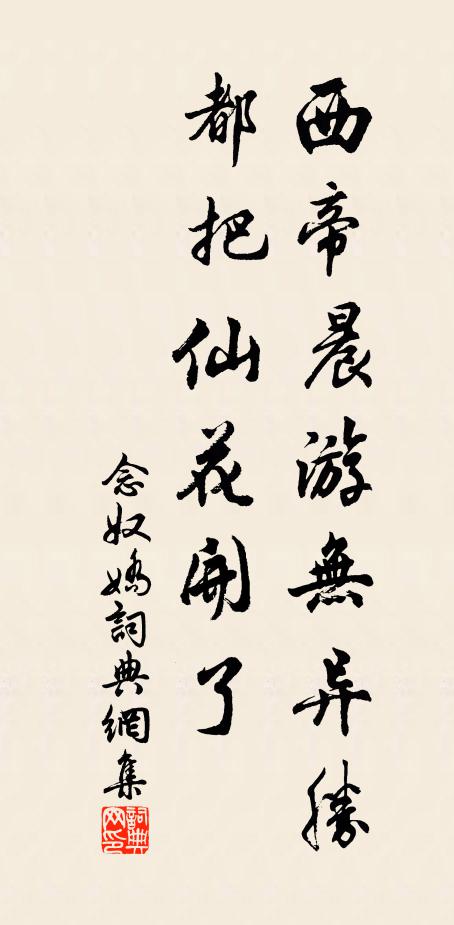 西帝晨游無异勝
都把仙花開了
念奴嬌詞典網集
詞典
网印